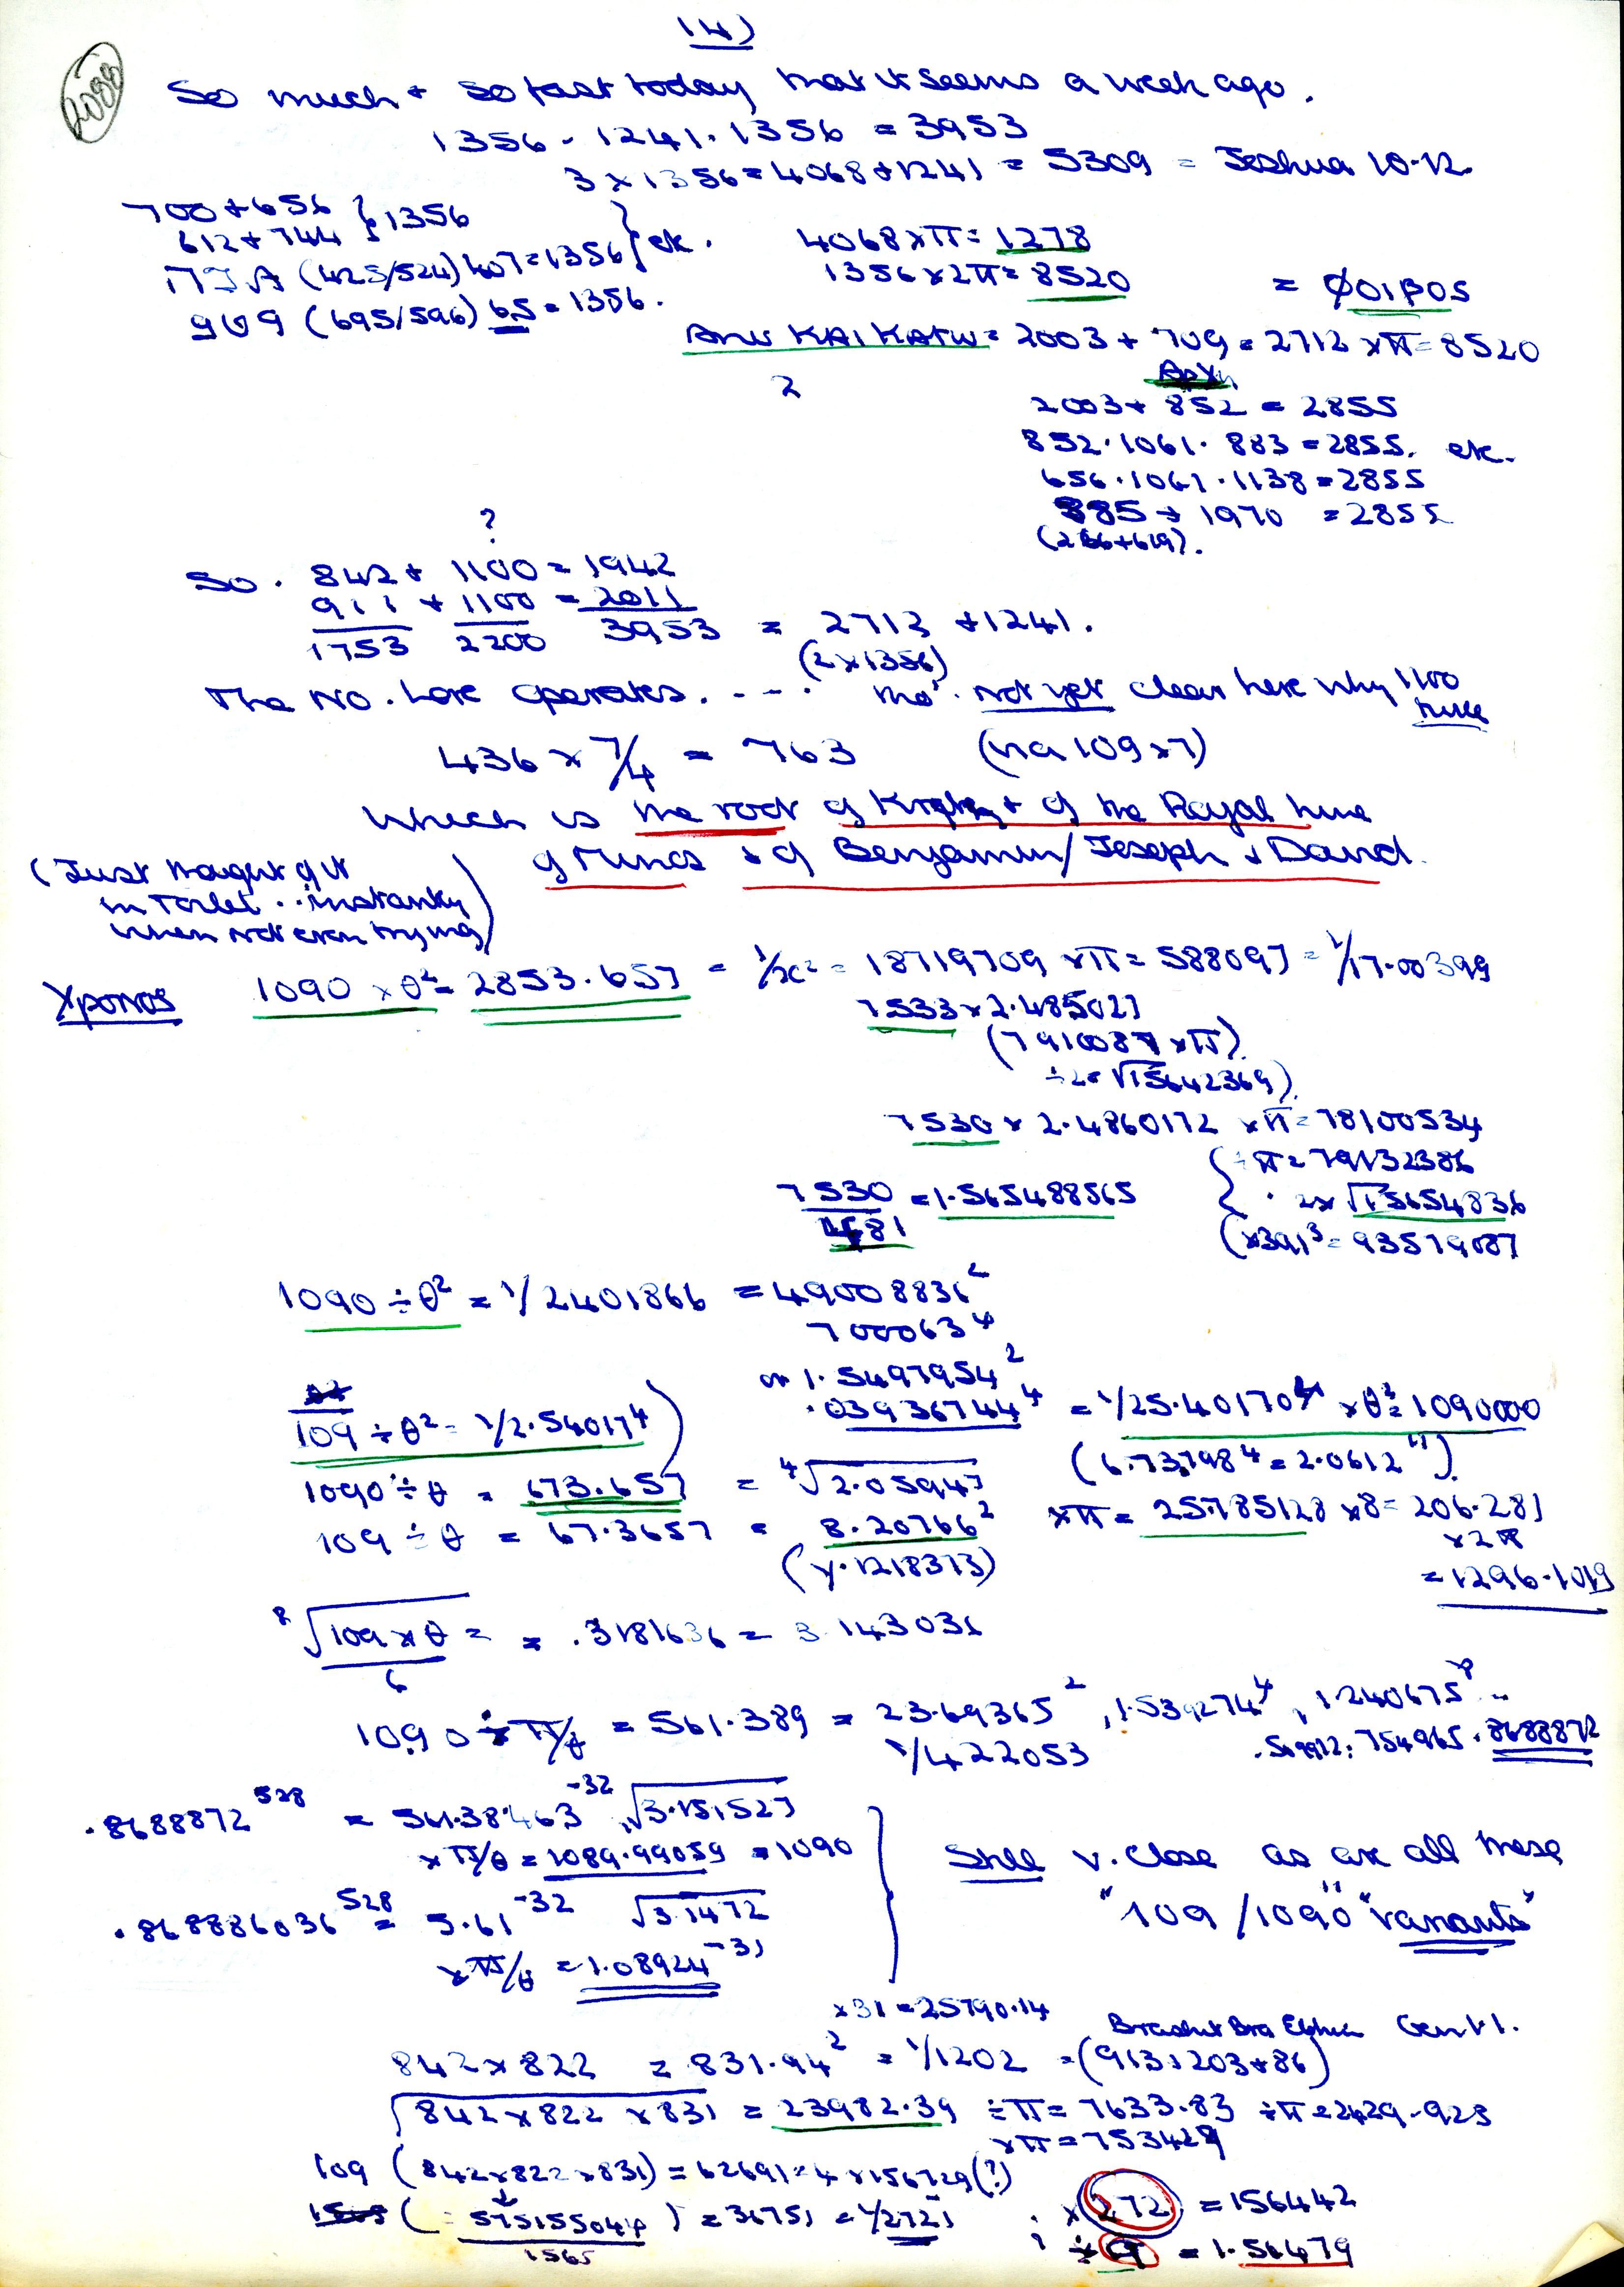 14)
2088
So much + so fast today that it seems a week ago.
1356 - 1241 . 1356 = 3953
3 x 1356 = 4068 + 1241 = 5309 = Joshua 10-12.
700 + 656 } 1356
612 + 744
(425/524) 407 = 1356 } etc.
(695/596) 65 = 1356.
4068 x π = 1278
1356 x 2π = 8520 = φοιβος
ΚΑΙ ΚΑΤW = 2003 + 709 = 2712 x π = 8520
2
2003 + 852 = 2855
852 . 1061 . 883 = 2855. etc.
656 . 1061 . 1138 = 2855
885 + 1970 = 2855
(266 + 619).
?
So . 842 + 1100 = 1942
911 + 1100 = 2011
1753 2200 3953 = 2712 + 1241.
(2 x 1356)
The No. here operates. - - - . tho' not yet clear here why 1100
twice
436 x 7/4 = 763 (via 109 x 7)
Which is the root of + of the Royal line
of & of Benjamin/Joseph & David.
(Just thought of it
in Toilet .. instantly
when not even trying)
Χρονος 1090 x θ² = 2853.657 = 1/x² = 18719709 x π = 588097 = 1/17.00399
7533 x 2.485027
(7910087 x π)
÷ 2 = √15642369)
7530 x 2.4860172 x π = 78100534
7530 = 1.565488565
481
÷ π = 79132386
. 2x √15654836
(x 391³ = 93579087
1090 ÷ θ² = 1/2401866 = 49008836²
700063⁴
or 1.5497954²
109 ÷ θ² = 1/2.54017⁴)
.03936744⁴ = 1/25.40170⁴ x θ² = 1090000
1090 ÷ θ = 673.657 = ⁴√2.05947
(6.737984 = 2.0612")
109 ÷ θ = 67.3657 = 8.20766² x π = 25.785128 x 8 = 206.281
(γ.1218373)
x 2π
= 1296.1019
⁸√109 x θ = = .3181636 = 3.143036
6
1090 ÷ π/θ = 561.389 = 23.69365², 1.539274⁴, 1.240675⁸ ..
1/422053
. 754965 . 8688872
.8688872⁵²⁸ = 561.38463⁻³² √3.151527
x π/θ = 1089.99059 = 1090
.868886036⁵²⁸ = 5.61⁻³² √3.1472
x π/θ = 1.08924⁻³¹
Still v. close as are all these
"109/1090" "variants"
x 31 = 25790.14
Gen 1.1.
842 x 822 = 831.94² = 1/1202 = (913 . 1203 + 86)
√842 x 822 x 831 = 23982.39 ÷ π = 7633.83 ÷ π = 2429.923
x π = 753429
log (842 x 822 x 831) = 62691 = 4 x 156729 (?)
(= 575155044 ) = 36751 = 1/2721
1565
; x 272 = 156442
= 1.56479